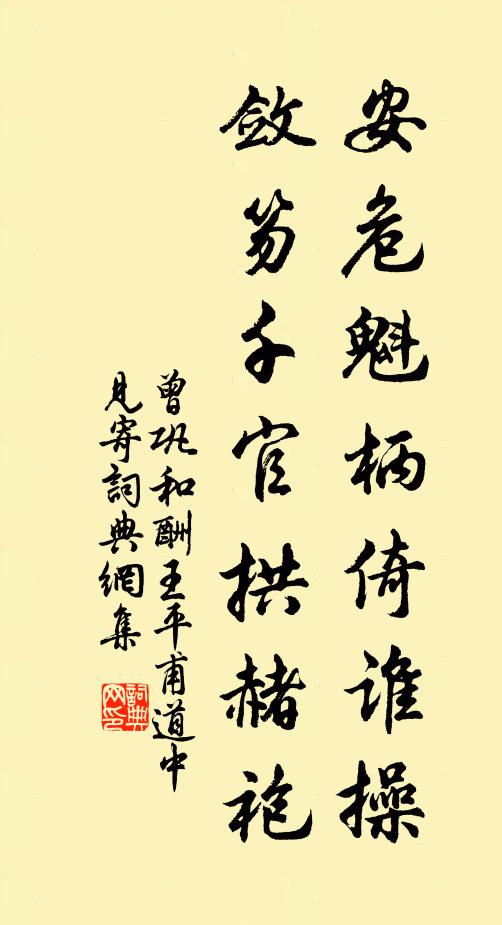 安危魁柄倚谁操
敛笏千官拱赭袍
曾巩和酬王平甫道中
见寄詞典網集
詞典網印